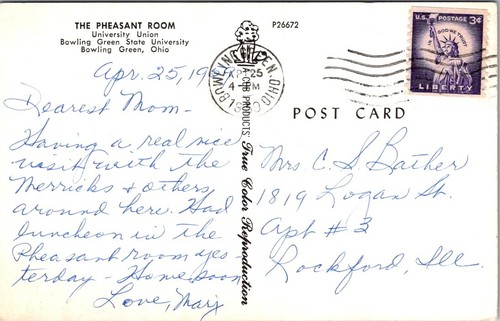 THE PHEASANT ROOM
University Union
Bowling Green State University
Bowling Green, Ohio
P26672
U.S. POSTAGE 3¢
IN GOD WE TRUST
LIBERTY
BOWLING GREEN, OHIO
25
4 PM
19
POST CARD
PRODUCTS
True Color Reproduction
Apr. 25, 19
Dearest Mom -
Having a real nice
visit with the
Merricks & others
around here. Had
luncheon in the
Pheasant room yes-
terday - Home soon
Love, Marj
Mrs C. S. Bather
1819 Logan St.
Apt # 3
Rockford, Ill.